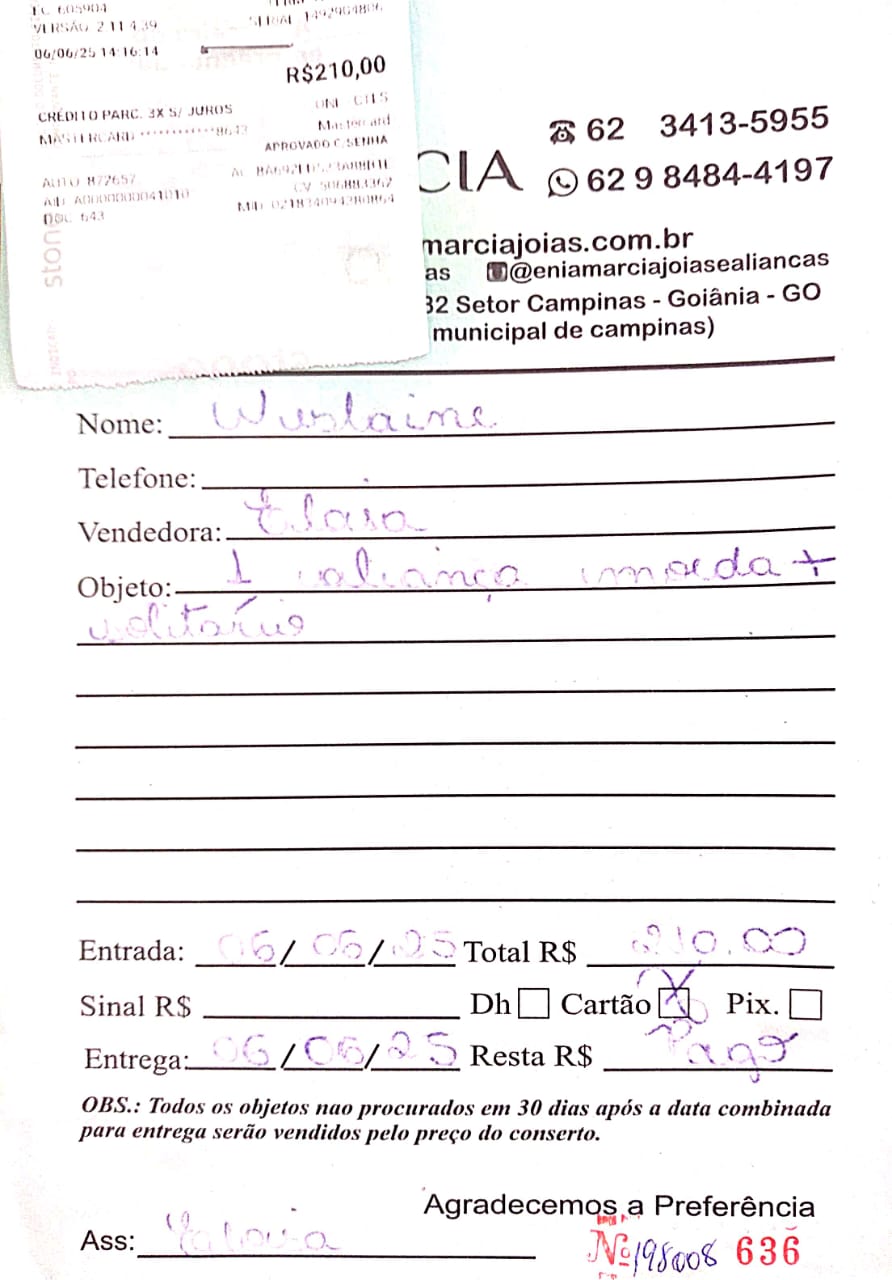 VERSÃO 2.11.4.39
06/06/25 14:16:14
R$210,00
CRÉDITO PARC. 3X S/ JUROS
ONL C:1LS
MASTERCARD ************8643
Mastercard
APROVADO C.SENHA
AUTO 877657
AID A0000000041010
DOC 643
stone
CIA
62 3413-5955
62 9 8484-4197
marciajoias.com.br
as @eniamarciajoiasealiancas
32 Setor Campinas - Goiânia - GO
municipal de campinas)
Nome: Wuslaine
Telefone:
Vendedora:
Objeto: 1 aliança moeda +
solitário
Entrada: 06/06/25 Total R$ 210.00
Sinal R$ Dh Cartão X Pix.
Entrega: 06/06/25 Resta R$ Pago
OBS.: Todos os objetos nao procurados em 30 dias após a data combinada
para entrega serão vendidos pelo preço do conserto.
Agradecemos a Preferência
Ass:
Nº 198008 636